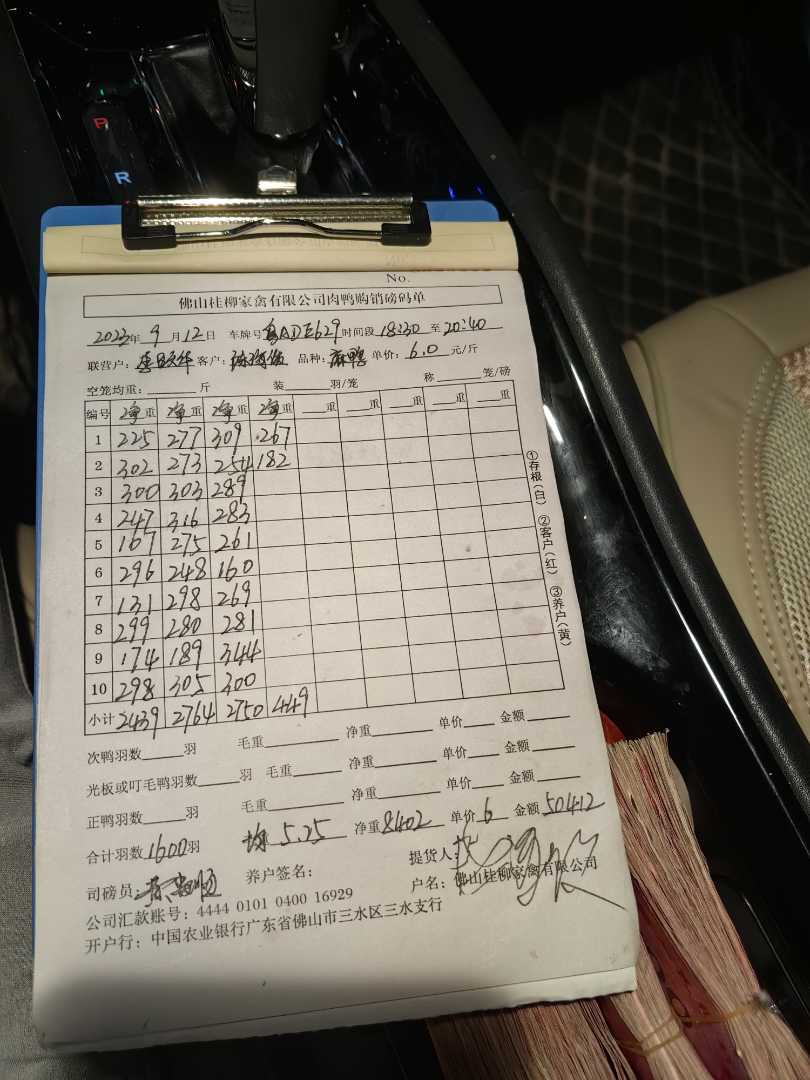 P
R
No.
佛山桂柳家禽有限公司肉鸭购销磅码单
2023年 9 月 12 日 车牌号 ADE629 时间段 18:30 至 20:40
联营户: 客户: 品种: 麻鸭 单价: 6.0 元/斤
空笼均重: 斤 装 羽/笼 称 笼/磅
编号 净重 净重 净重 净重 重 重 重 重 重
1 225 277 309 267
2 302 273 254 182
3 300 303 289
4 247 316 283
5 167 275 261
6 296 248 160
7 131 298 269
8 299 280 281
9 174 189 344
10 298 305 300
小计 2439 2764 2750 449
①存根(白) ②客户(红) ③养户(黄)
次鸭羽数 羽 毛重 净重 单价 金额
光板或叮毛鸭羽数 羽 毛重 净重 单价 金额
正鸭羽数 羽 毛重 净重 单价 金额
合计羽数 1600 羽 均 5.25 净重 8402 单价 6 金额 50412
司磅员: 养户签名: 提货人:
公司汇款账号: 4444 0101 0400 16929 户名: 佛山桂柳家禽有限公司
开户行: 中国农业银行广东省佛山市三水区三水支行